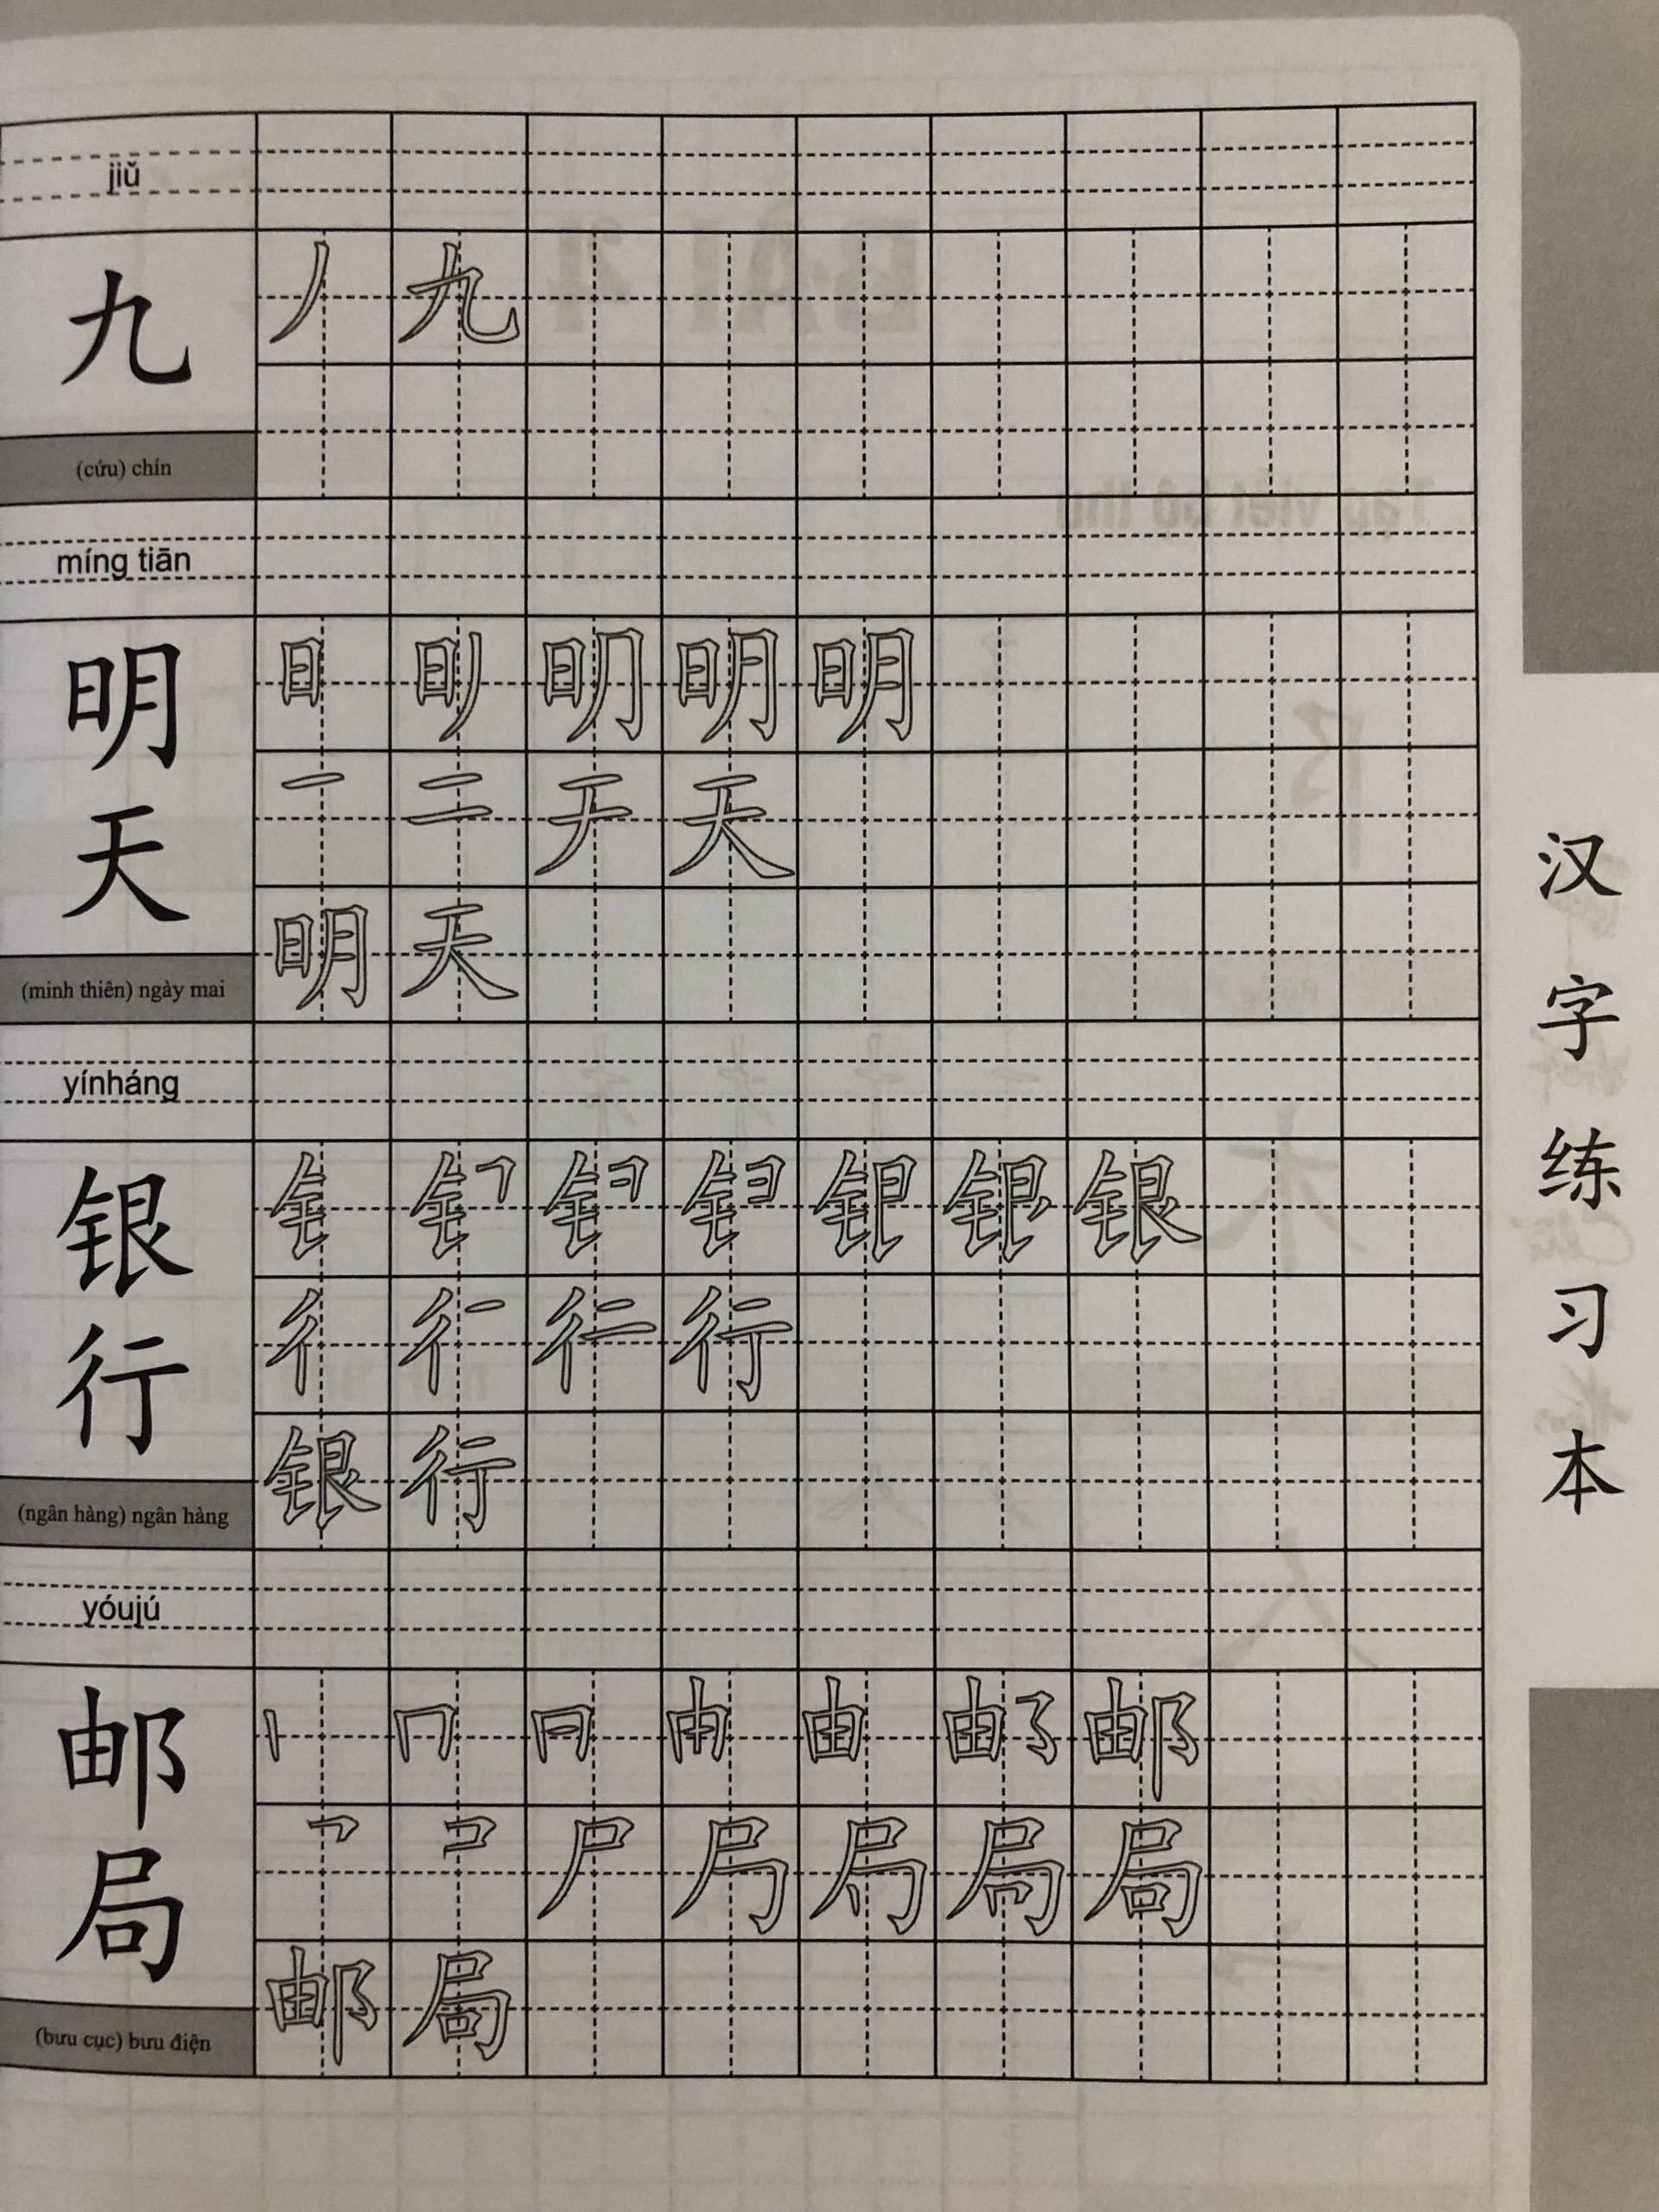 jiǔ
九
丿 九
(cứu) chín
míng tiān
明天
明
一 二 天
明 天
(minh thiên) ngày mai
yínháng
银行
钅 银
彳 行
银 行
(ngân hàng) ngân hàng
yóujú
邮局
丨 冂 由 邮
尸 局
邮 局
(bưu cục) bưu điện
汉字练习本